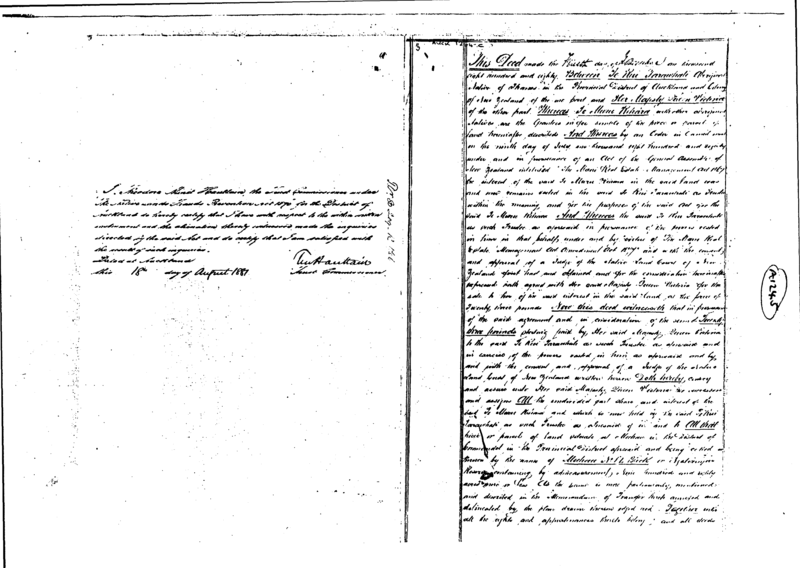 I, Theodore Minet Haultain, the Trust Commissioner under
the Native Lands Frauds Prevention Act 1870 for the District of
Auckland do hereby certify that I have with respect to the within
instrument and the alienation thereby witnessed made the inquiries
directed by the said Act and do certify that I am satisfied with
the result of such inquiries.
Dated at Auckland
this 18th day of August 1881
TM Haultain
Trust Commissioner
5
This Deed made the day of one thousand
eight hundred and eighty Between Te Kiri Tarawhati Aboriginal
Native of Thames in the Provincial District of Auckland and Colony
of New Zealand of the one part and Her Majesty Queen Victoria
of the other part Whereas Te Mum with other aboriginal
Natives are the Grantees in fee simple of the piece or parcel of
land hereinafter described And Whereas by an Order in Council made
on the ninth day of July one thousand eight hundred and eighty
under and in pursuance of an Act of the General Assembly of
New Zealand intituled "The Maori Real Estate Management Act 1867"
the interest of the said in the said land was
and now remains vested in the said Te Kiri Tarawhati as Trustee
within the meaning and for the purposes of the said Act for the
said And Whereas the said Te Kiri Tarawhati
as such Trustee as aforesaid in pursuance of the powers vested
in him in that behalf under and by virtue of The Maori Real
Estate Management Act Amendment Act 1877 and with the consent
and approval of a Judge of the Native Land Court of New
Zealand first had and obtained and for the consideration hereinafter
expressed hath agreed with Her said Majesty Queen Victoria for the
sale to her of the said interest in the said land at the price of
Twenty three pounds Now this deed witnesseth that in pursuance
of the said agreement and in consideration of the sum of Twenty
three pounds sterling paid by Her said Majesty Queen Victoria
to the said Te Kiri Tarawhati as such Trustee as aforesaid and
in exercise of the powers vested in him as aforesaid and by
and with the consent and approval of a Judge of the Native
Land Court of New Zealand written hereon Doth hereby convey
and assure unto Her said Majesty Queen Victoria her successors
and assigns All the undivided part share and interest of the
said and which is now held by the said Te Kiri
Tarawhati as such Trustee as aforesaid of in and to All that
piece or parcel of land situate at in the District of
Coromandel in the Provincial District aforesaid and being called or
known by the name of
containing by admeasurement Nine hundred and sixty
more or less As the same is more particularly mentioned
and described in the Memorandum of Transfer hereto annexed and
delineated by the plan drawn thereon edged red Together with
all the rights and appurtenances thereto belonging and all deeds